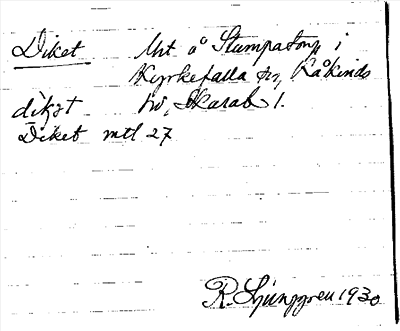 Diket Uht å Stumpatorp i
Kyrkefalla sn, Kåkinds
dikət hd, Skarab l.
Diket mtl 27
R. Ljunggren 1930